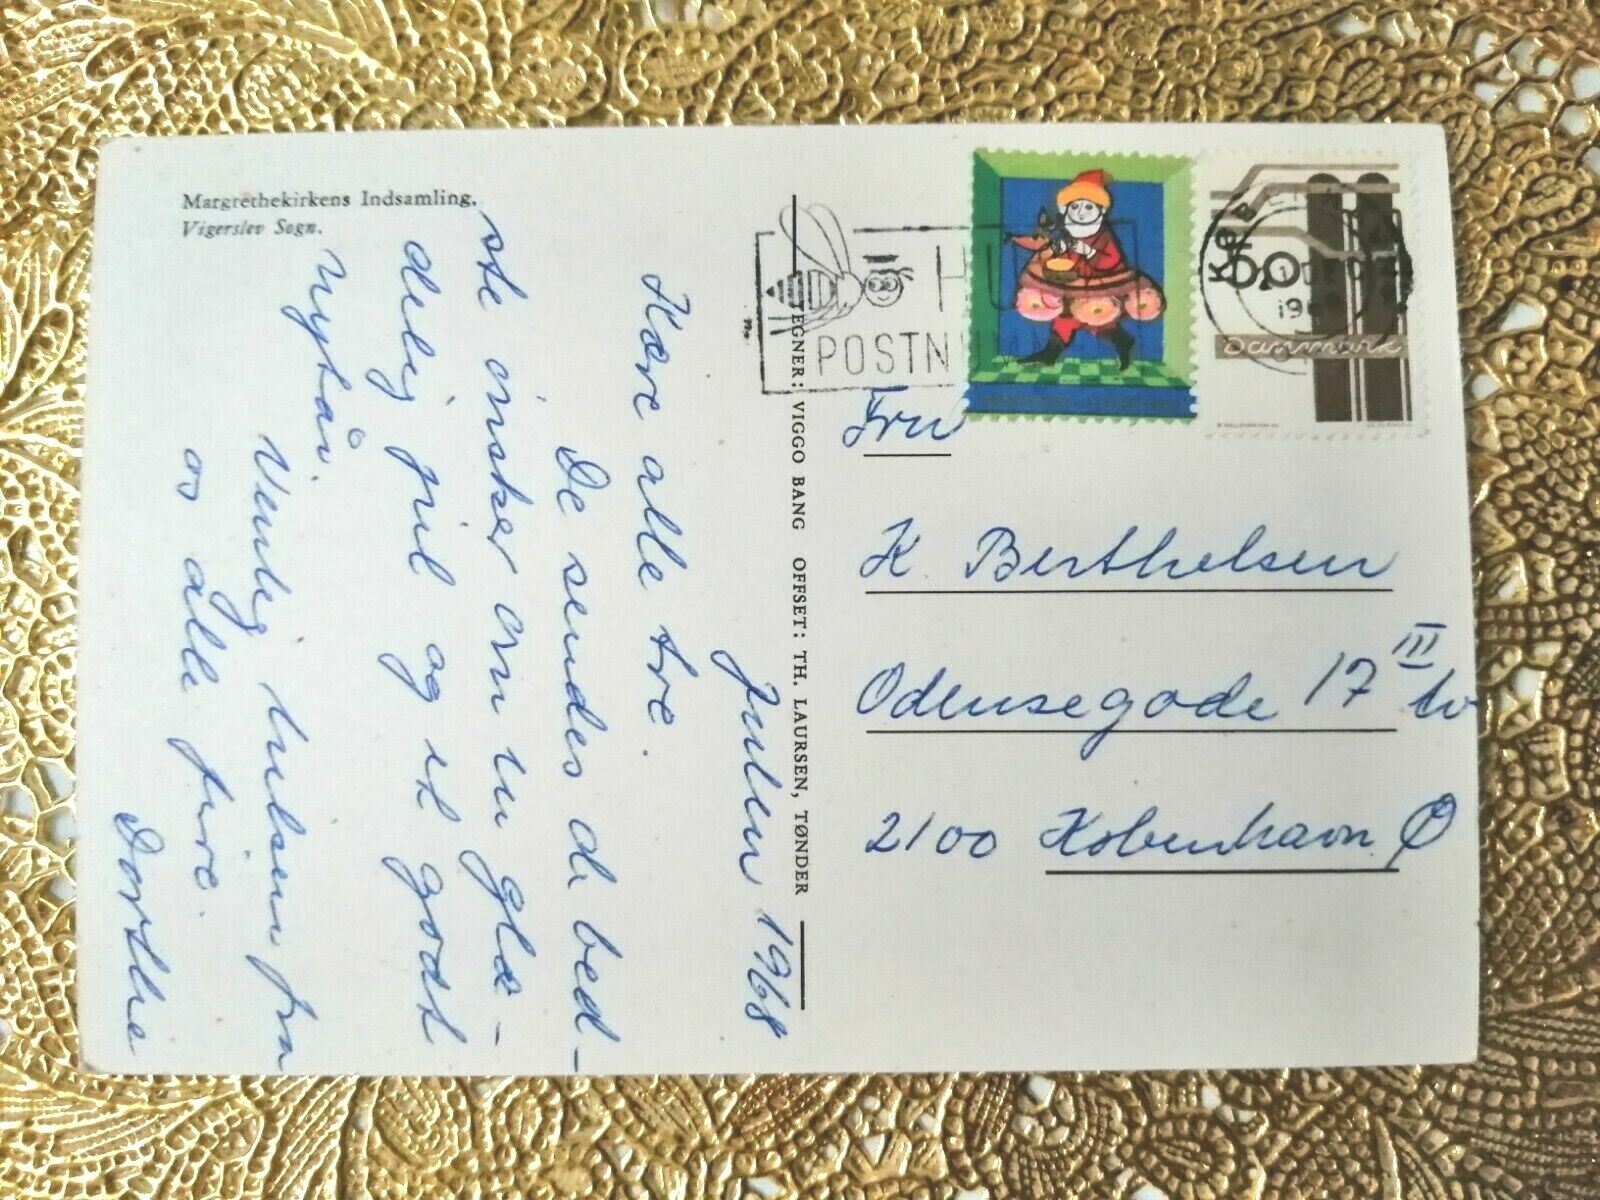 Margrethekirkens Indsamling.
Vigerslev Sogn.
Julen 1968
Kære alle tre.
De sendes de bed-
ste ønsker om en glæ-
delig jul og et godt
nytår.
Venlig hilsen fra
os alle fire.
Dorthe
TEGNER: VIGGO BANG OFFSET: TH. LAURSEN, TØNDER
HUSK
POSTN
KØB
Danmark
Fru
K. Berthelsen
Odensegade 17 III tv
2100 København Ø